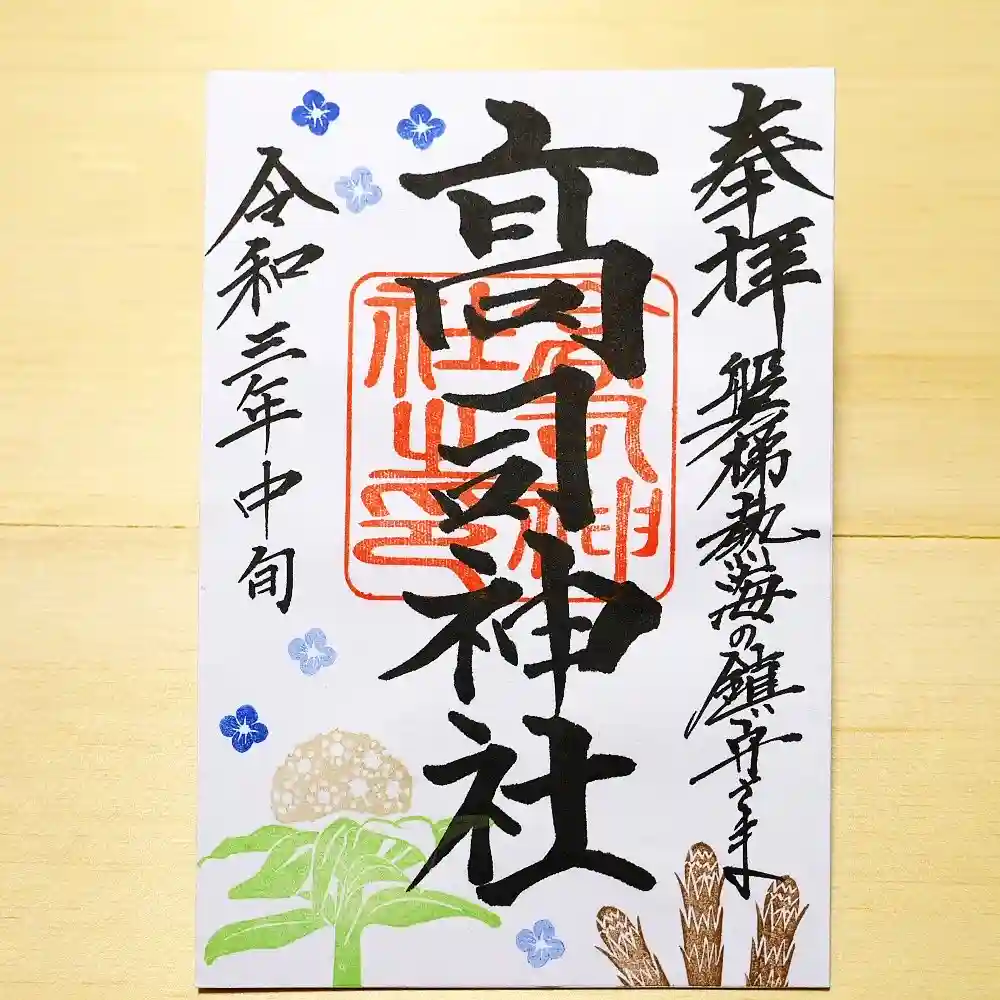 奉拝
磐梯熱海の鎮守さま
高司神社
高司神社之印
令和三年中旬